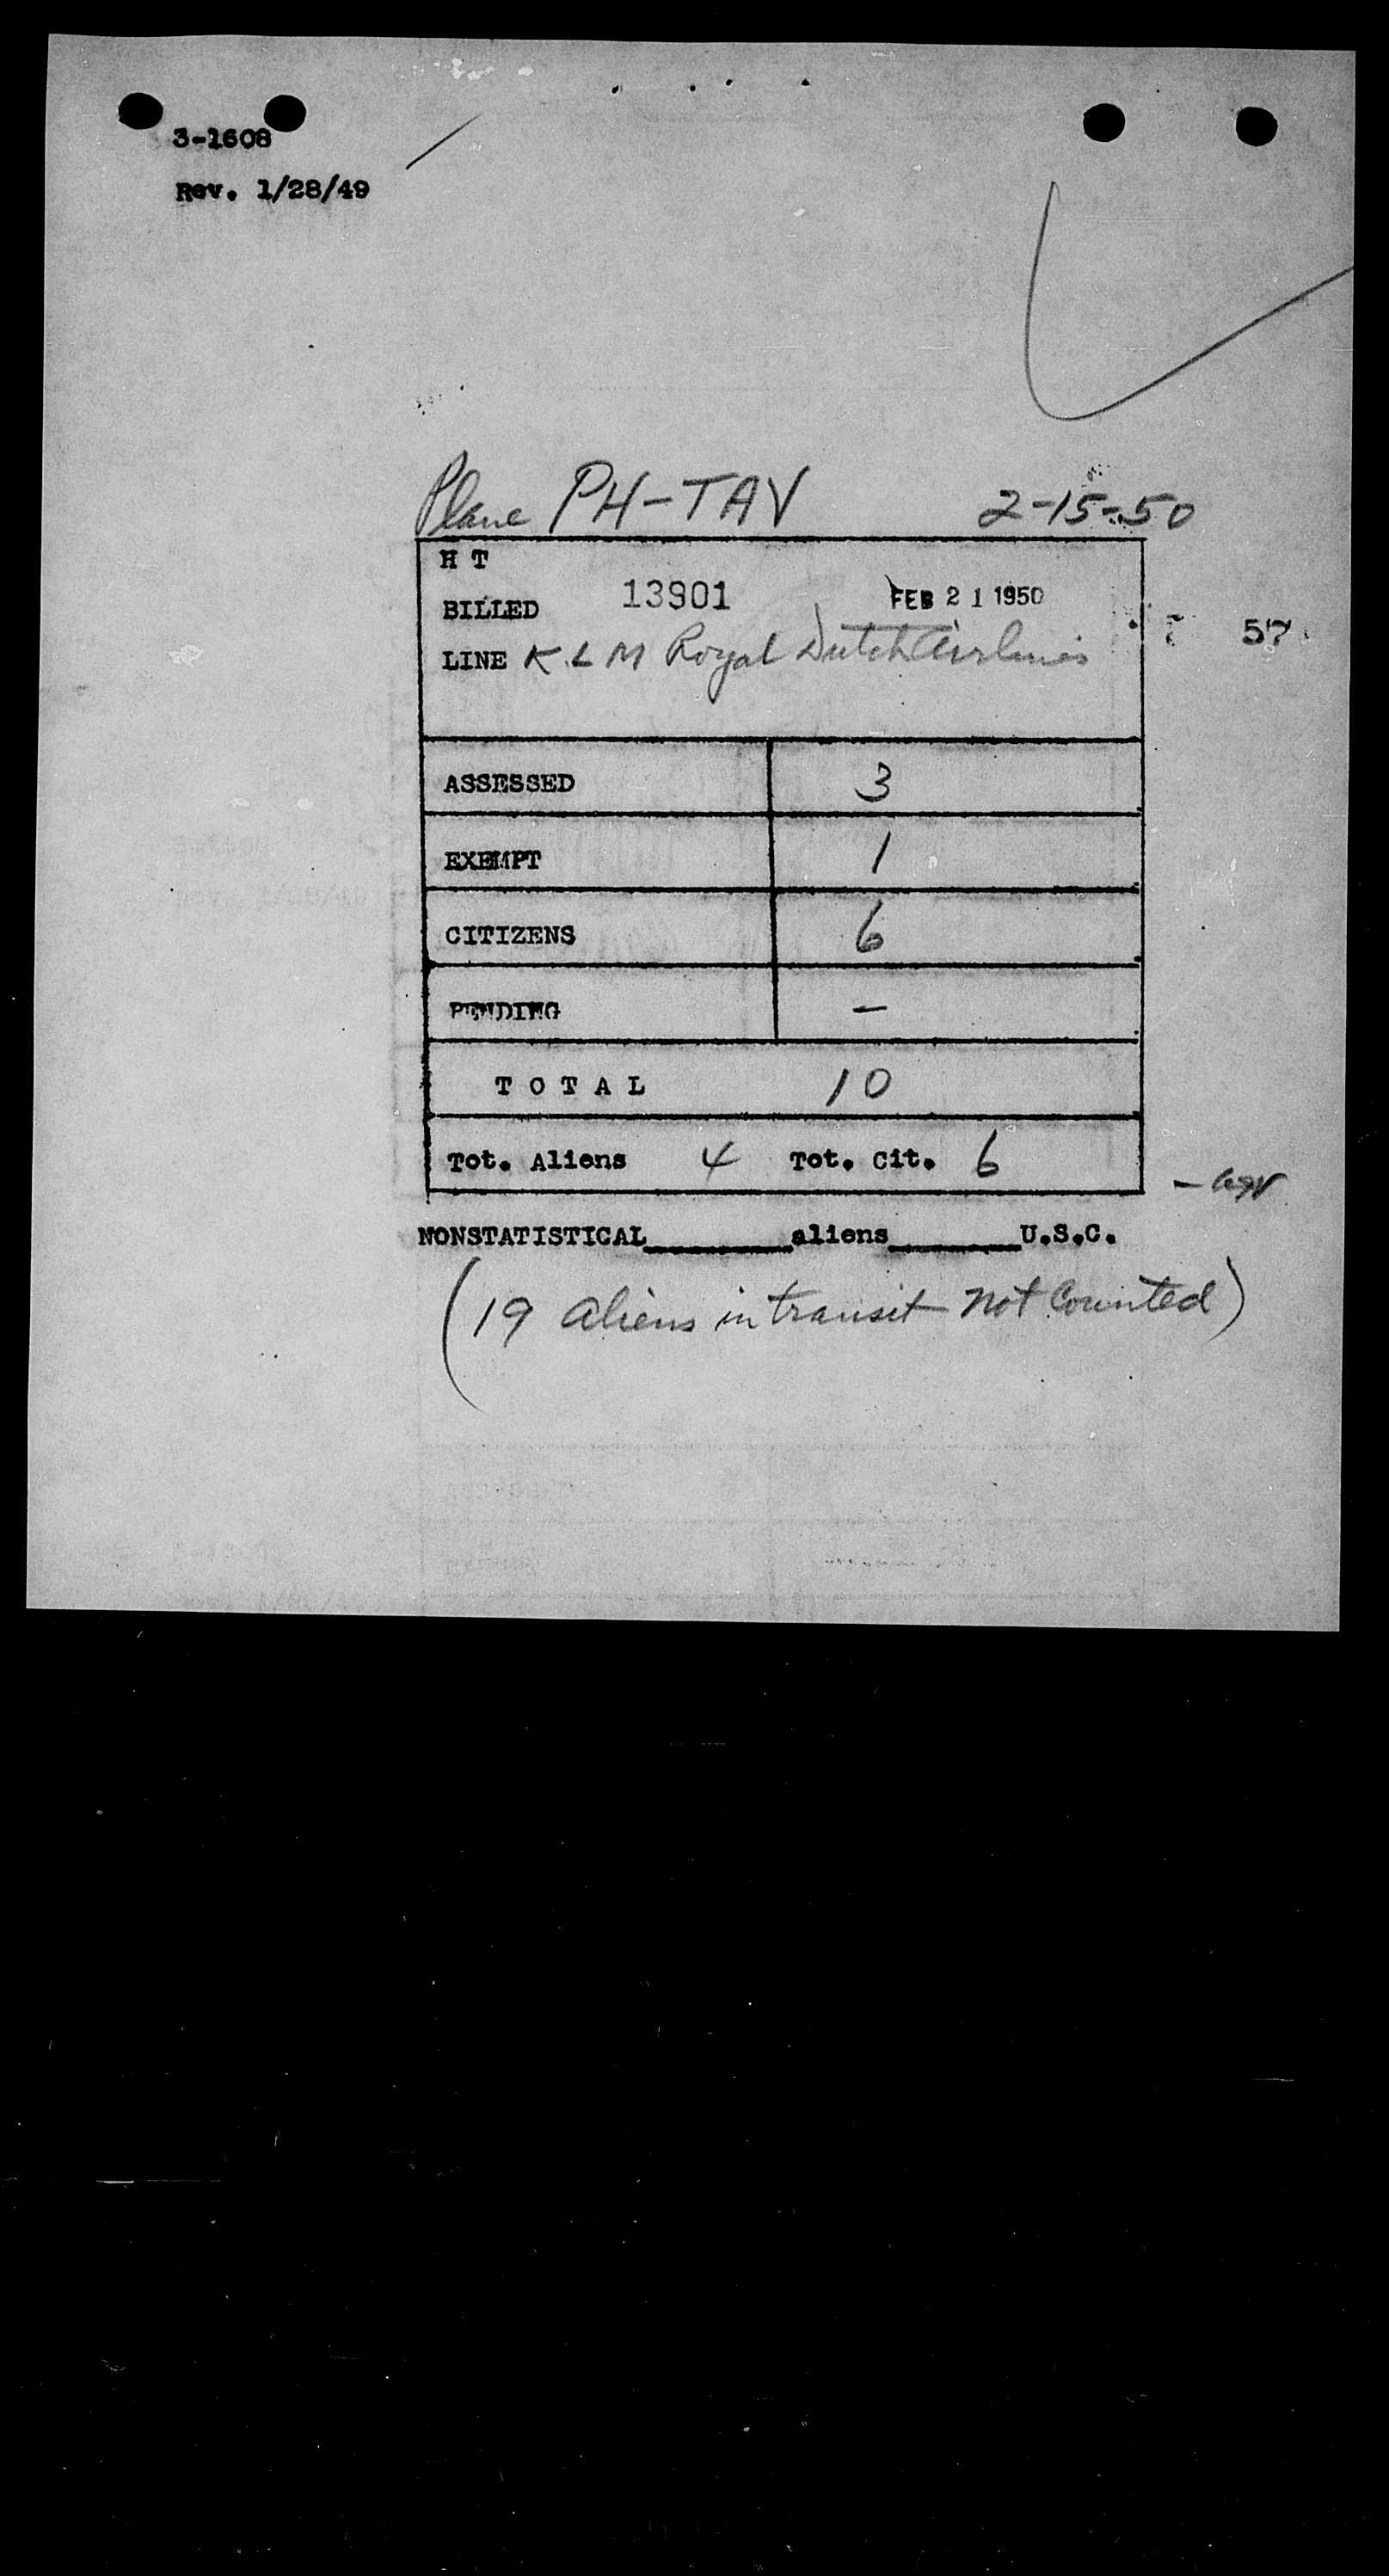 3-1608
Rev. 1/28/49
Plane PH-TAV 2-15-50
H T
BILLED 13901 FEB 21 1950
57
LINE K L M Royal Dutch Airlines
ASSESSED 3
EXEMPT 1
CITIZENS 6
PENDING —
T O T A L 10
Tot. Aliens 4 Tot. Cit. 6
NONSTATISTICAL________aliens________U.S.C.
(19 aliens in transit not Counted)